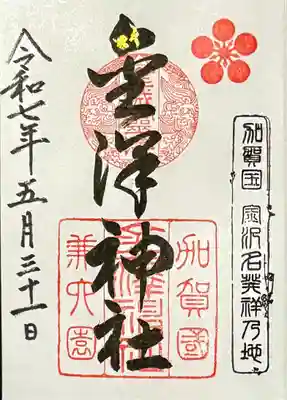 加賀国 金沢名発祥乃地
金澤神社
加賀國
金澤神社
兼六園
令和七年五月三十一日